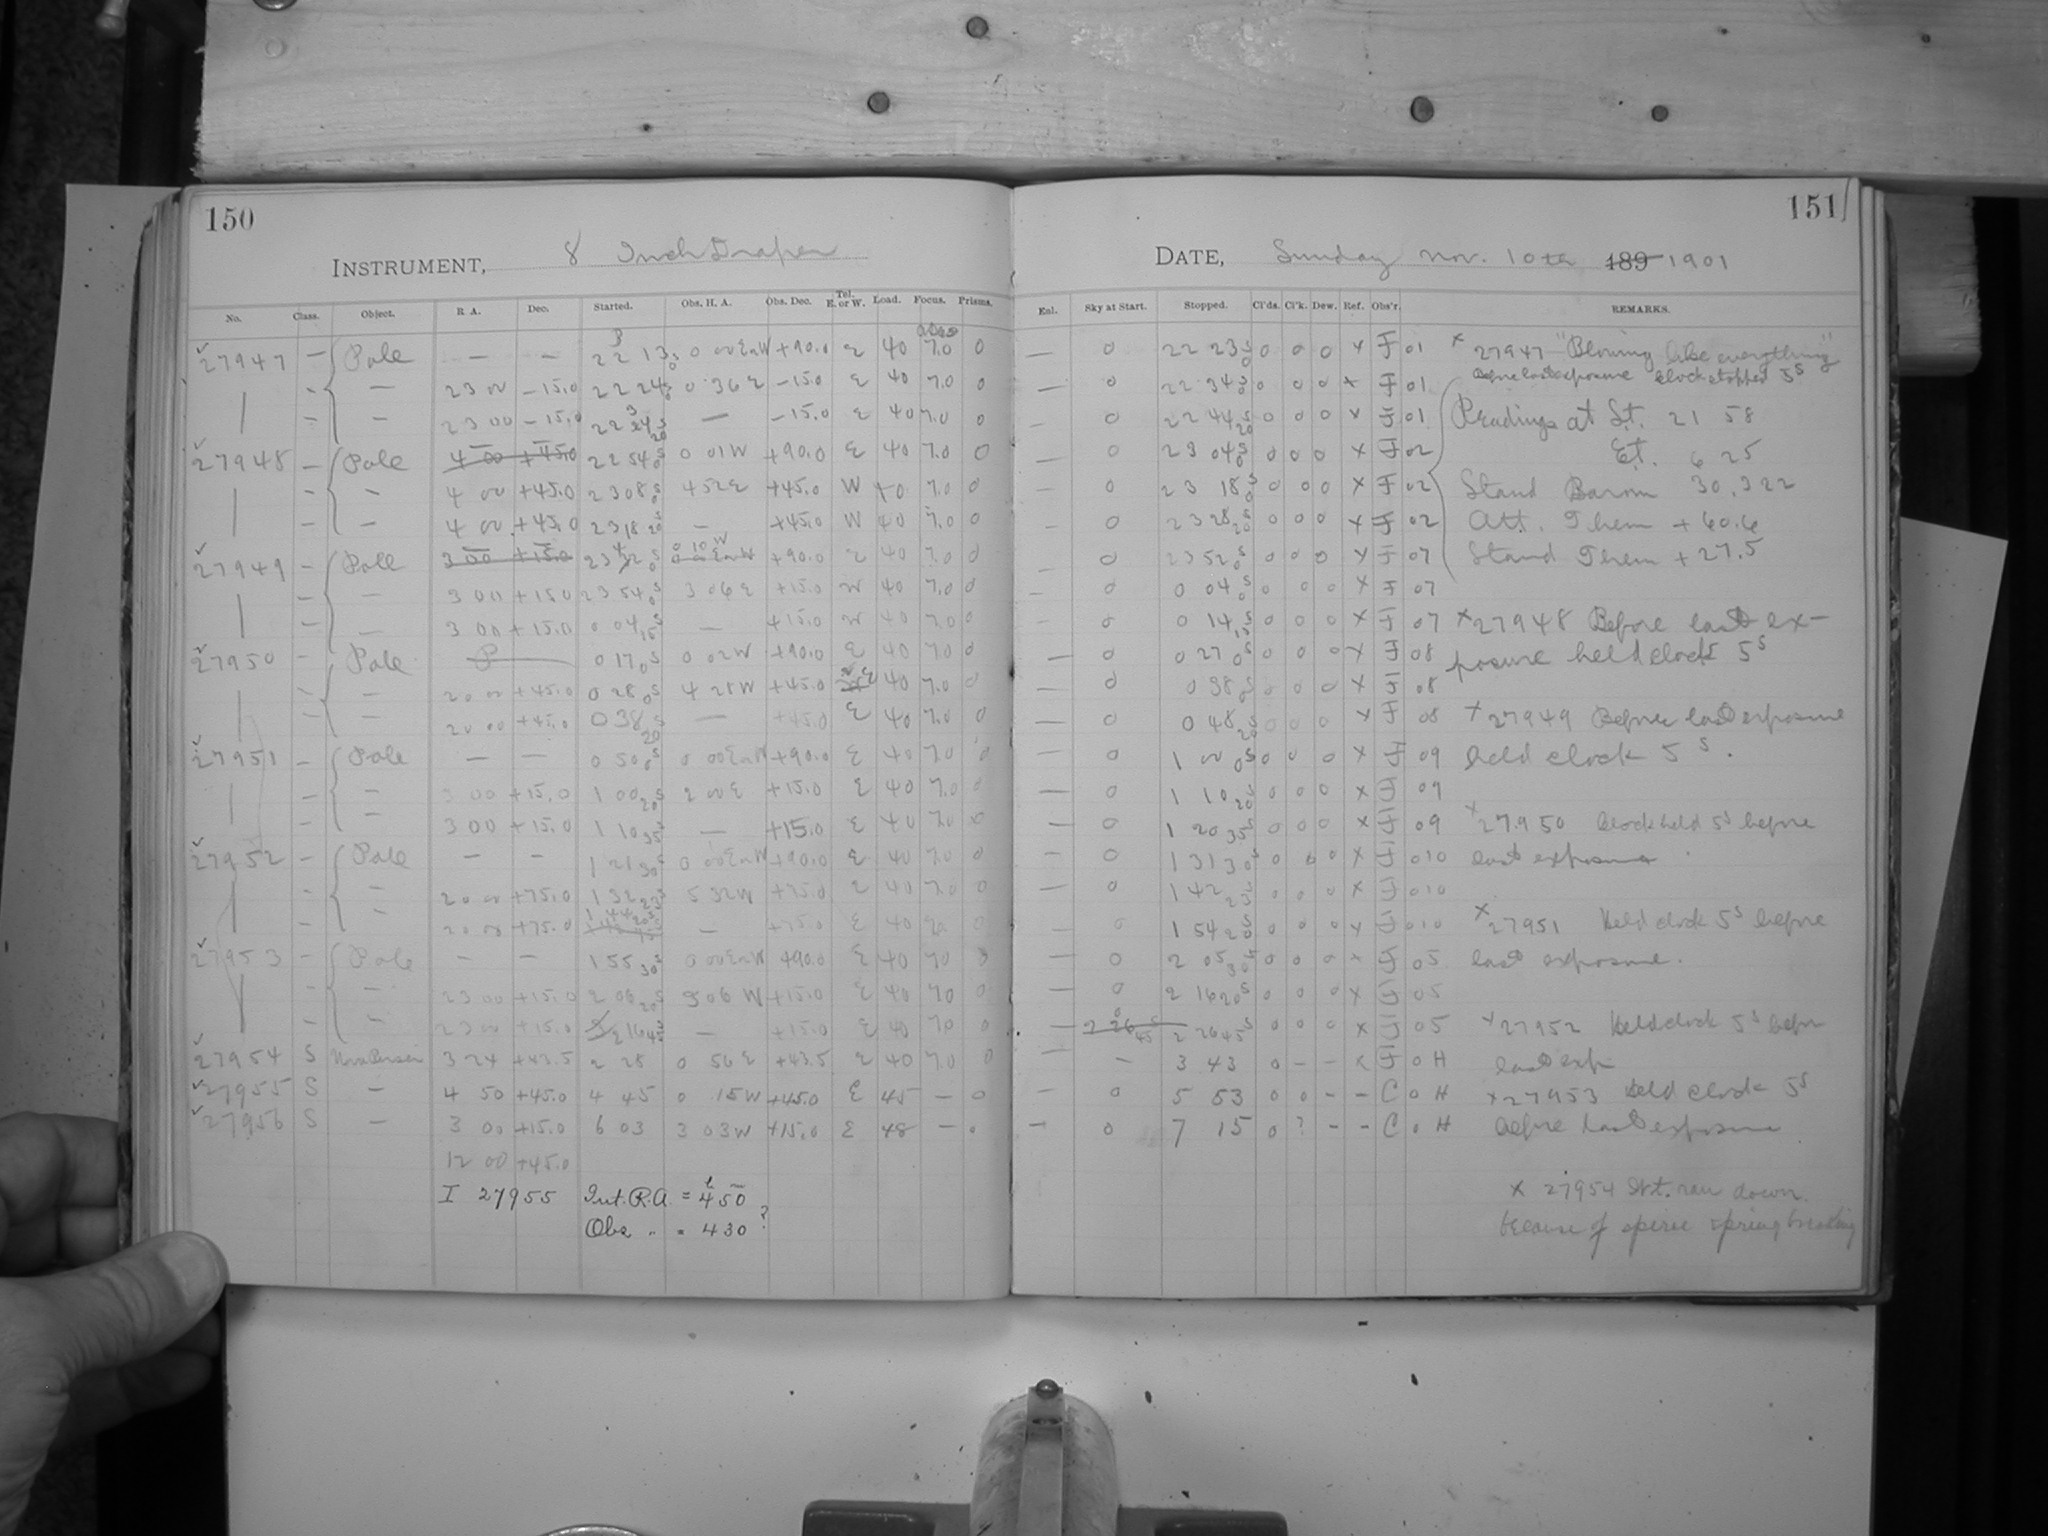 150
INSTRUMENT, 8 Inch Draper
No. Class. Object. R A. Dec. Started. Obs. H. A. Obs. Dec. Tel. E. or W. Load. Focus. Prisms.
27947 — Pole — — 22 13 0 +90.0 E 40 7.0 0
— — 23 00 −15.0 22 24 0 36 E −15.0 E 40 7.0 0
— — 23 00 −15.0 22 34 — −15.0 E 40 7.0 0
27948 — Pole 4 00 +45.0 22 54 0s 0 01 W +90.0 E 40 7.0 0
— — 4 00 +45.0 23 08 0s 4 52 E +45.0 W 40 7.0 0
— — 4 00 +45.0 23 18 20s — +45.0 W 40 7.0 0
27949 — Pole 3 00 +15.0 23 42 0s 0 10 W +90.0 E 40 7.0 0
— — 3 00 +15.0 23 54 0s 3 06 E +15.0 W 40 7.0 0
— — 3 00 +15.0 0 04 15s — +15.0 W 40 7.0 0
27950 — Pole P 0 17 0s 0 02 W +90.0 E 40 7.0 0
— — 20 00 +45.0 0 28 0s 4 28 W +45.0 E 40 7.0 0
— — 20 00 +45.0 0 38 20s — +45.0 E 40 7.0 0
27951 — Pole — — 0 50 0s 0 00 E or W +90.0 E 40 7.0 0
— — 3 00 +15.0 1 00 20s 2 00 E +15.0 E 40 7.0 0
— — 3 00 +15.0 1 10 35s — +15.0 E 40 7.0 0
27952 — Pole — — 1 21 30s 0 00 E or W +90.0 E 40 7.0 0
— — 20 00 +75.0 1 32 23s 5 32 W +75.0 E 40 7.0 0
— — 20 00 +75.0 1 44 20s — +75.0 E 40 7.0 0
27953 — Pole — — 1 55 30s 0 00 E or W +90.0 E 40 7.0 0
— — 23 00 +15.0 2 06 20s 3 06 W +15.0 E 40 7.0 0
— — 23 00 +15.0 2 16 45s — +15.0 E 40 7.0 0
27954 S Nova Persei 3 24 +43.5 2 28 0 56 E +43.5 E 40 7.0 0
27955 S — 4 50 +45.0 4 45 0 15 W +45.0 E 45 — 0
27956 S — 3 00 +15.0 6 03 3 03 W +15.0 E 48 — 0
12 00 +45.0
I 27955 Int. R.A. = 4 50
Obs " = 4 30 ?
151
DATE, Sunday Nov. 10th 189 1901
Enl. Sky at Start. Stopped. Cl'ds. Cl'k. Dew. Ref. Obs'r. REMARKS.
— 0 22 23 0s 0 0 0 x J 01
— 0 22 34 0s 0 0 0 x J 01
— 0 22 44 20s 0 0 0 x J 01
— 0 23 04 0s 0 0 0 x J 02
— 0 23 18 0s 0 0 0 x J 02
— 0 23 28 20s 0 0 0 x J 02
— 0 23 52 0s 0 0 0 x J 07
— 0 0 04 0s 0 0 0 x J 07
— 0 0 14 15s 0 0 0 x J 07
— 0 0 27 0s 0 0 0 x J 08
— 0 0 38 0s 0 0 0 x J 08
— 0 0 48 20s 0 0 0 x J 08
— 0 1 00 0s 0 0 0 x J 09
— 0 1 10 20s 0 0 0 x J 09
— 0 1 20 35s 0 0 0 x J 09
— 0 1 31 30s 0 0 0 x J 010
— 0 1 42 23 0 0 0 x J 010
— 0 1 54 20s 0 0 0 x J 010
— 0 2 05 30s 0 0 0 x J 05
— 0 2 16 20s 0 0 0 x J 05
2 26 45s 2 26 45s 0 0 0 x J 05
— — 3 43 0 — — x J 0 H
— 0 5 53 0 0 — — C 0 H
— 0 7 15 0 ? — — C 0 H
x 27947 "Blowing like everything"
Before last exposure clock stopped 5s
Readings at St. 21 58
Et. 6 25
Stand Barom 30.322
Att. Them + 60.6
Stand Them + 27.5
x 27948 Before last ex-
posure held clock 5s
x 27949 Before last exposure
held clock 5s.
x 27950 Clock held 5s before
last exposure
x 27951 Held clock 5s before
last exposure.
x 27952 Held clock 5s before
last exp
x 27953 Held clock 5s
before last exposure
x 27954 Wt. ran down
because of spring breaking